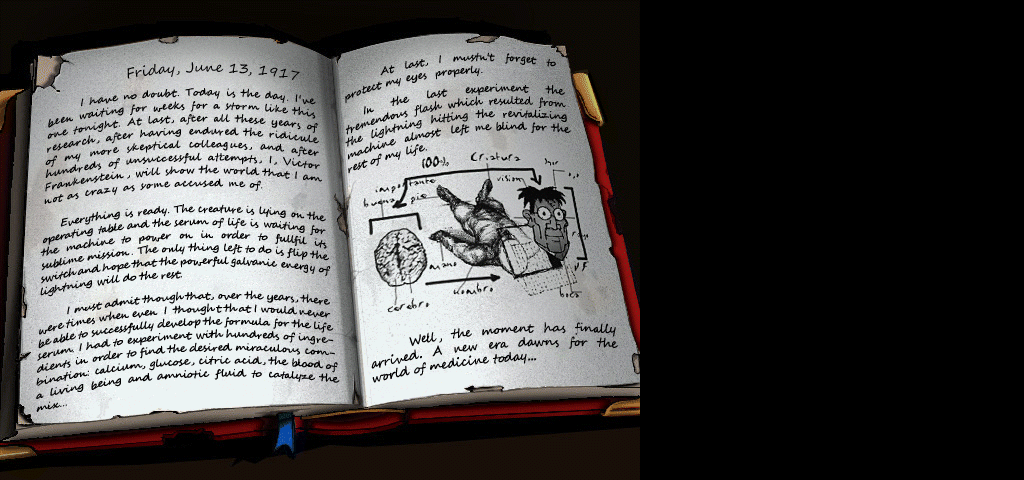 Friday, June 13, 1917
I have no doubt. Today is the day. I've
been waiting for weeks for a storm like this
one tonight. At last, after all these years of
research, after having endured the ridicule
of my more skeptical colleagues, and after
hundreds of unsuccessful attempts, I, Victor
Frankenstein, will show the world that I am
not as crazy as some accused me of.
Everything is ready. The creature is lying on the
operating table and the serum of life is waiting for
the machine to power on in order to fullfil its
sublime mission. The only thing left to do is flip the
switch and hope that the powerful galvanic energy of
lightning will do the rest.
I must admit though that, over the years, there
were times when even I thought that I would never
be able to successfully develop the formula for the life
serum. I had to experiment with hundreds of ingre-
dients in order to find the desired miraculous com-
bination: calcium, glucose, citric acid, the blood of
a living being and amniotic fluid to catalyze the
mix...
At last, I mustn't forget to
protect my eyes properly.
In the last experiment the
tremendous flash which resulted from
the lightning hitting the revitalizing
machine almost left me blind for the
rest of my life.
100% Criatura
importante vision
buena pie
mano
cerebro hombro boca
Well, the moment has finally
arrived. A new era dawns for the
world of medicine today...